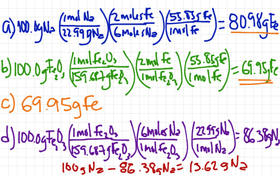 a) 100.0g Na (1mol Na / 22.99g Na) (2moles Fe / 6moles Na) (55.85g Fe / 1mol Fe) = 80.98g Fe
b) 100.0g Fe₂O₃ (1mol Fe₂O₃ / 159.687g Fe₂O₃) (2mol Fe / 1mol Fe₂O₃) (55.85g Fe / 1mol Fe) = 69.95g Fe
c) 69.95g Fe
d) 100.0g Fe₂O₃ (1mol Fe₂O₃ / 159.687g Fe₂O₃) (6moles Na / 1mol Fe₂O₃) (22.99g Na / 1mol Na) = 86.38g Na
100g Na - 86.38g Na = 13.62g Na